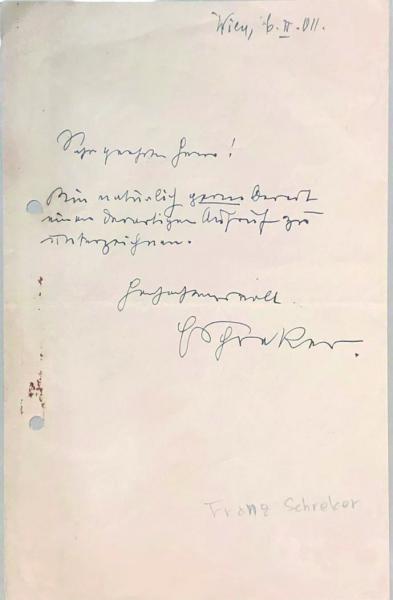 Wien, 6. II. 011.
Sehr geehrter Herr!
Bin natürlich gerne bereit
einen derartigen Aufruf zu
unterzeichnen.
Hochachtungsvoll
Schreker.
Franz Schreker